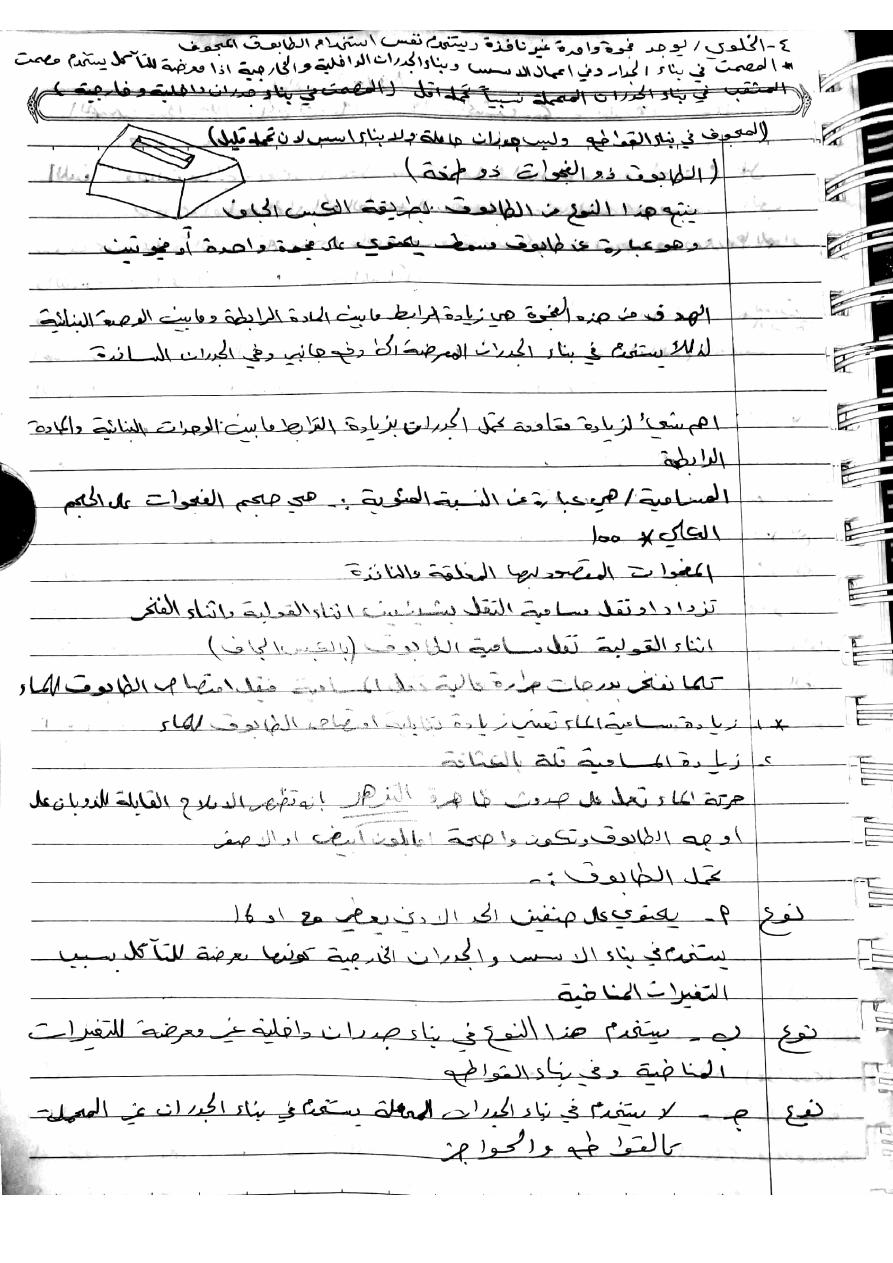 ٤- الخلوي / يوجد فجوة واحدة غير نافذة ويستخدم نفس استخدام الطابوق المجوف
* المصمت في بناء الجدار وفي اعمال الاسس وبناء الجدران الداخلية والخارجية اذا معرضة للتآكل يستخدم مصمت
المثقب في بناء الجدران المحملة نسبياً تحمله اقل (المصمت في بناء جدران داخلية وخارجية)
(المجوف في بناء القواطع وليس جدران حاملة ولا بناء اسس لان تحمله قليل)
(الطابوق ذو الفجوات ذو طمغة)
ينتج هذا النوع من الطابوق بطريقة الكبس الجاف
وهو عبارة عن طابوق مصمط يحتوي على فجوة واحدة أو فجوتين
الهدف من هذه الفجوة هي زيادة الرابط ما بين المادة الرابطة وما بين الوحدة البنائية
لذلك يستخدم في بناء الجدران المعرضة الى دفع جانبي وفي الجدران الساندة
اهم شيء لزيادة مقاومة تحمل الجدران بزيادة الترابط ما بين الوحدات البنائية والمادة
الرابطة
المسامية / هي عبارة عن النسبة المئوية :- هي حجم الفجوات على الحجم
الكلي * 100
الفجوات المقصود بها المغلقة والنافذة
تزداد او تقل مسامية الثقل بشيئين اثناء القولبة واثناء الفخر
اثناء القولبة تقل مسامية الطابوق (بالكبس الجاف)
كلما نفخر بدرجات حرارة عالية تقل المسامية فيقل امتصاص الطابوق للماء
* ١. زيادة مسامية الماء تعني زيادة قابلية امتصاص الطابوق للماء
٢. زيادة المسامية قلة بالكثافة
حركة الماء تعمل على حدوث ظاهرة التزهر إنه تظهر الاملاح القابلة للذوبان على
اوجه الطابوق وتكون واضحة باللون أبيض او الاصفر
تحمل الطابوق :-
نوع أ- يحتوي على صنفين الحد الادنى يعطي مع او 16
يستخدم في بناء الاسس والجدران الخارجية كونها معرضة للتآكل بسبب
التغيرات المناخية
نوع ب- يستخدم هذا النوع في بناء جدران داخلية غير معرضة للتغيرات
المناخية وفي بناء القواطع
نوع ج- لا يستخدم في بناء الجدران المحملة يستخدم في بناء الجدران غير المحملة
كالقواطع والحواجز